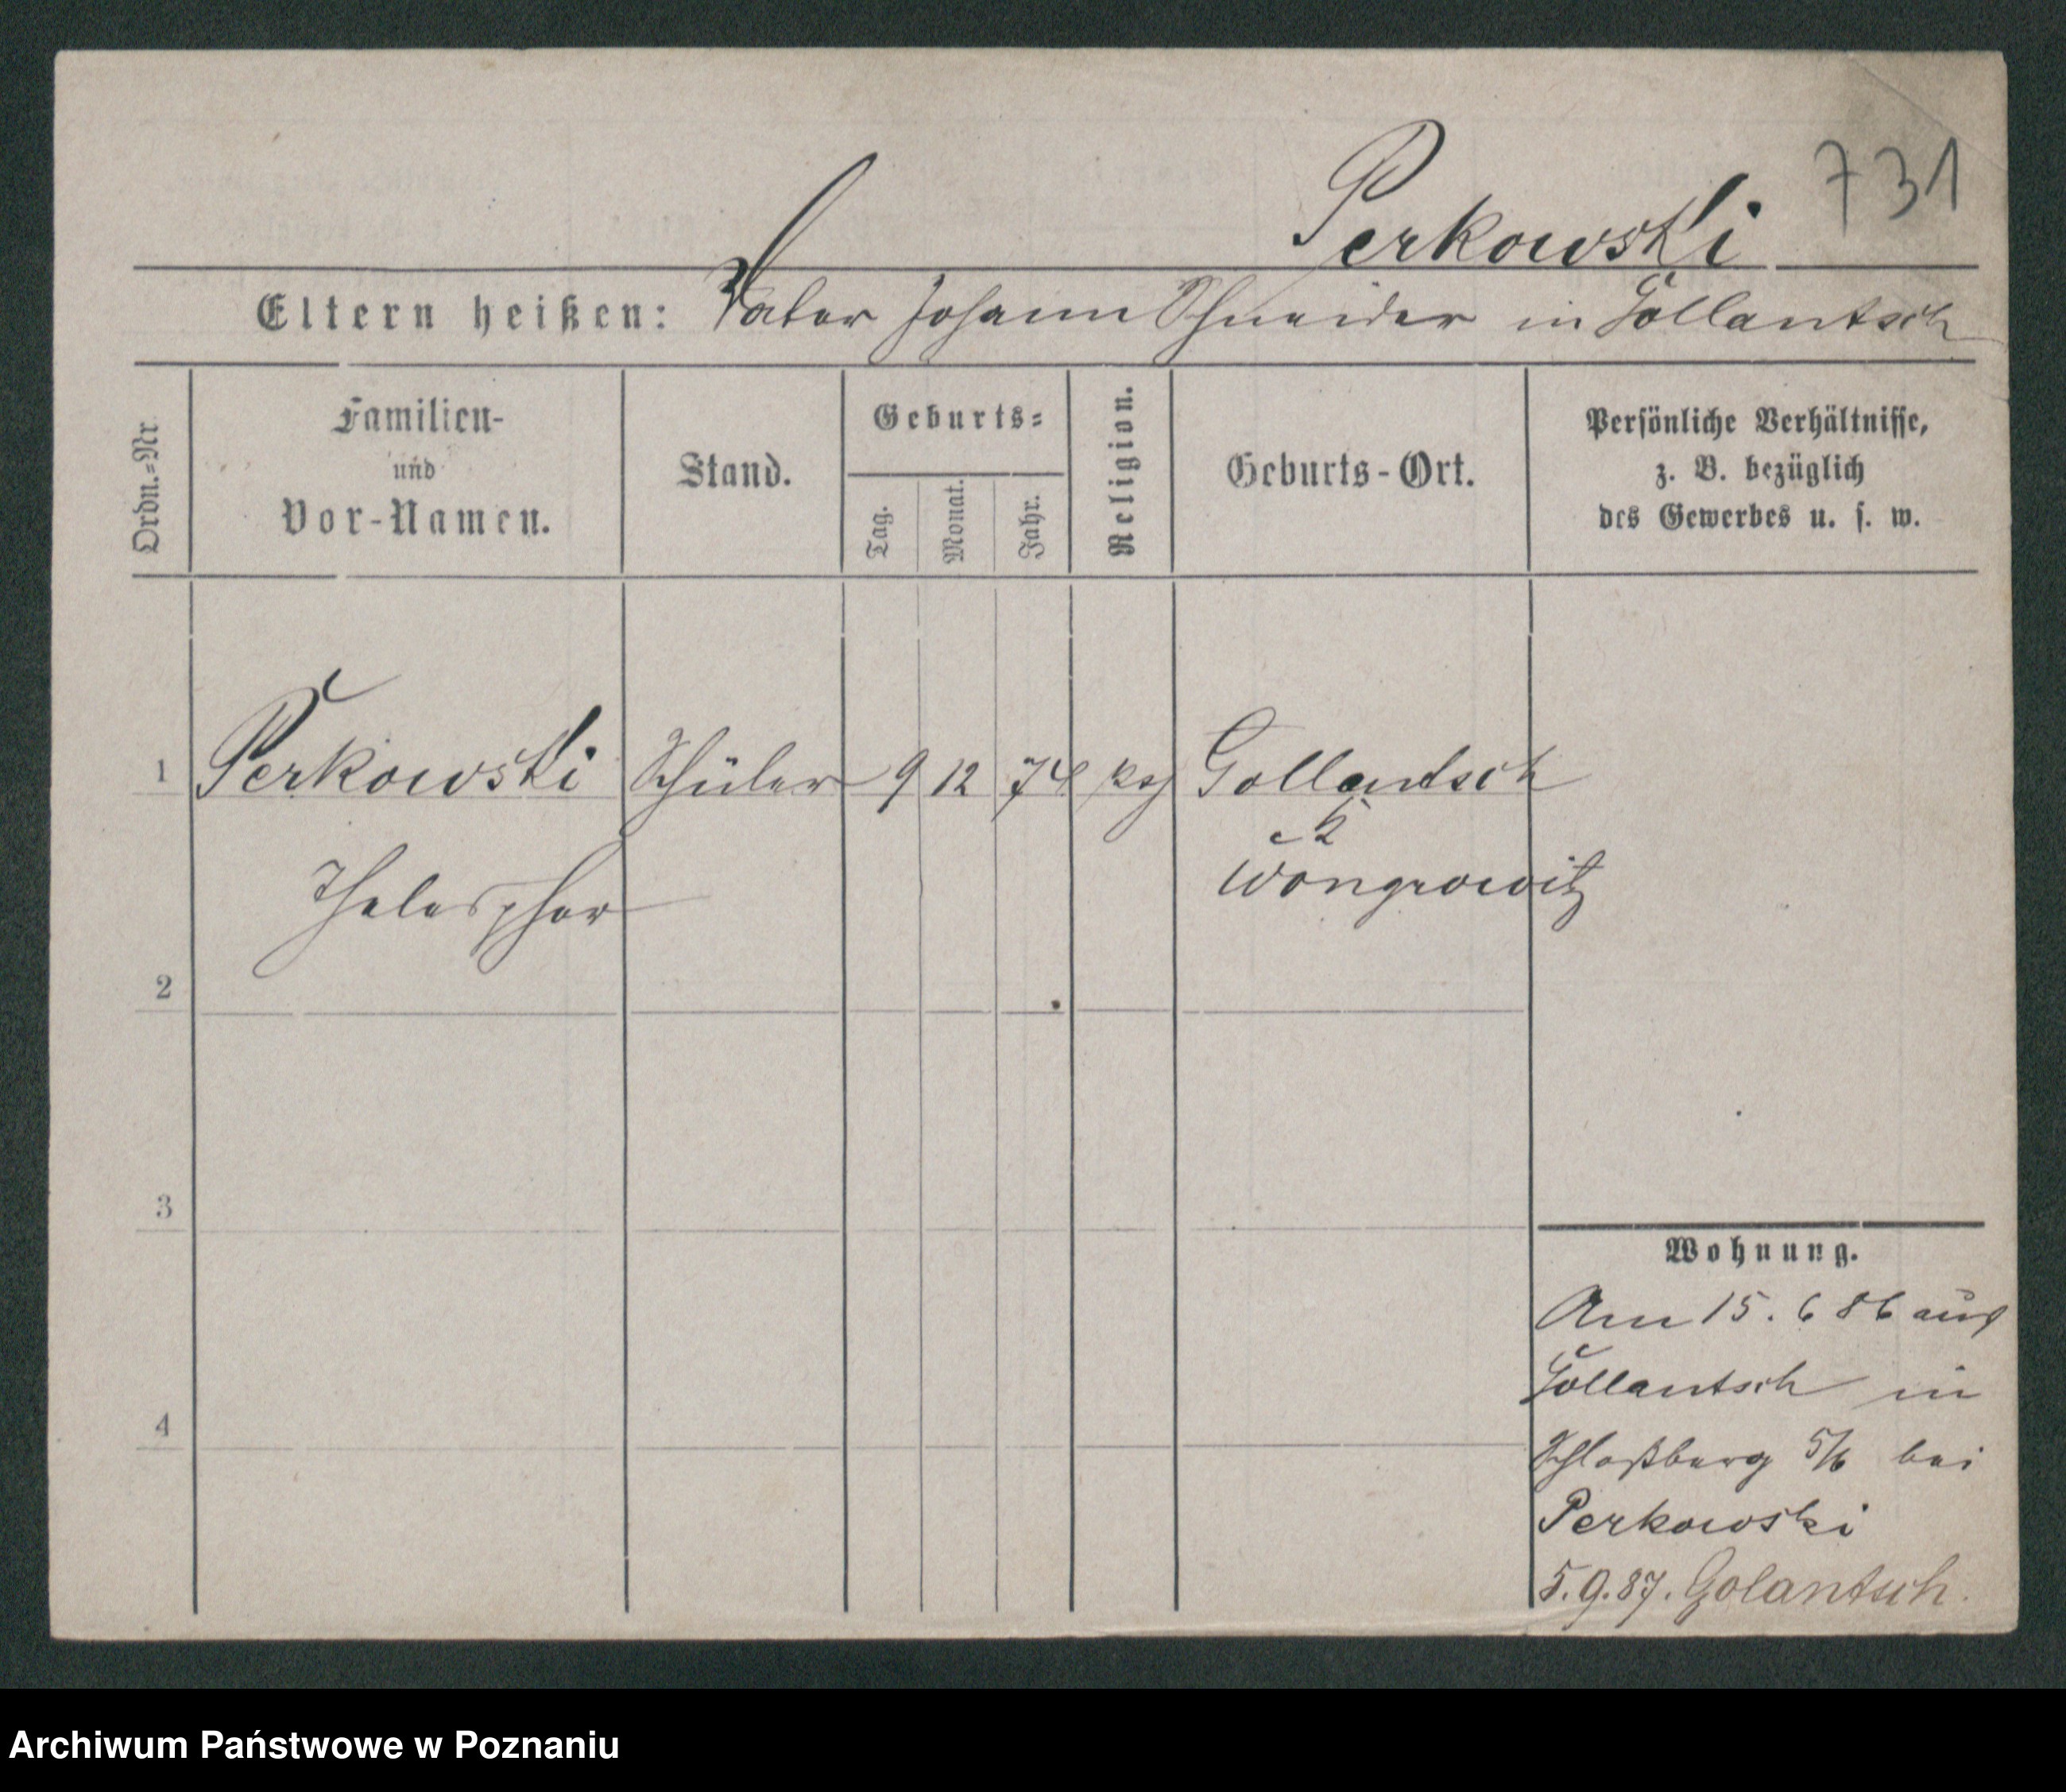 731
Perkowski
Eltern heißen: Vater Johann Schneider in Gollantsch
Ordn.=Nr.
Familien-
und
Vor-Namen.
Stand.
Geburts=
Tag.
Monat.
Jahr.
Religion.
Geburts-Ort.
Persönliche Verhältnisse,
z. B. bezüglich
des Gewerbes u. s. w.
1 Perkowski Schüler 9 12 74 Gollantsch
Wongrowitz
Thelesphor
2
3
Wohnung.
Am 15. 6 86 aus
Gollantsch in
4
Schloßberg 5/6 bei
Perkowski
5.9.87. Golantsch.
Archiwum Państwowe w Poznaniu